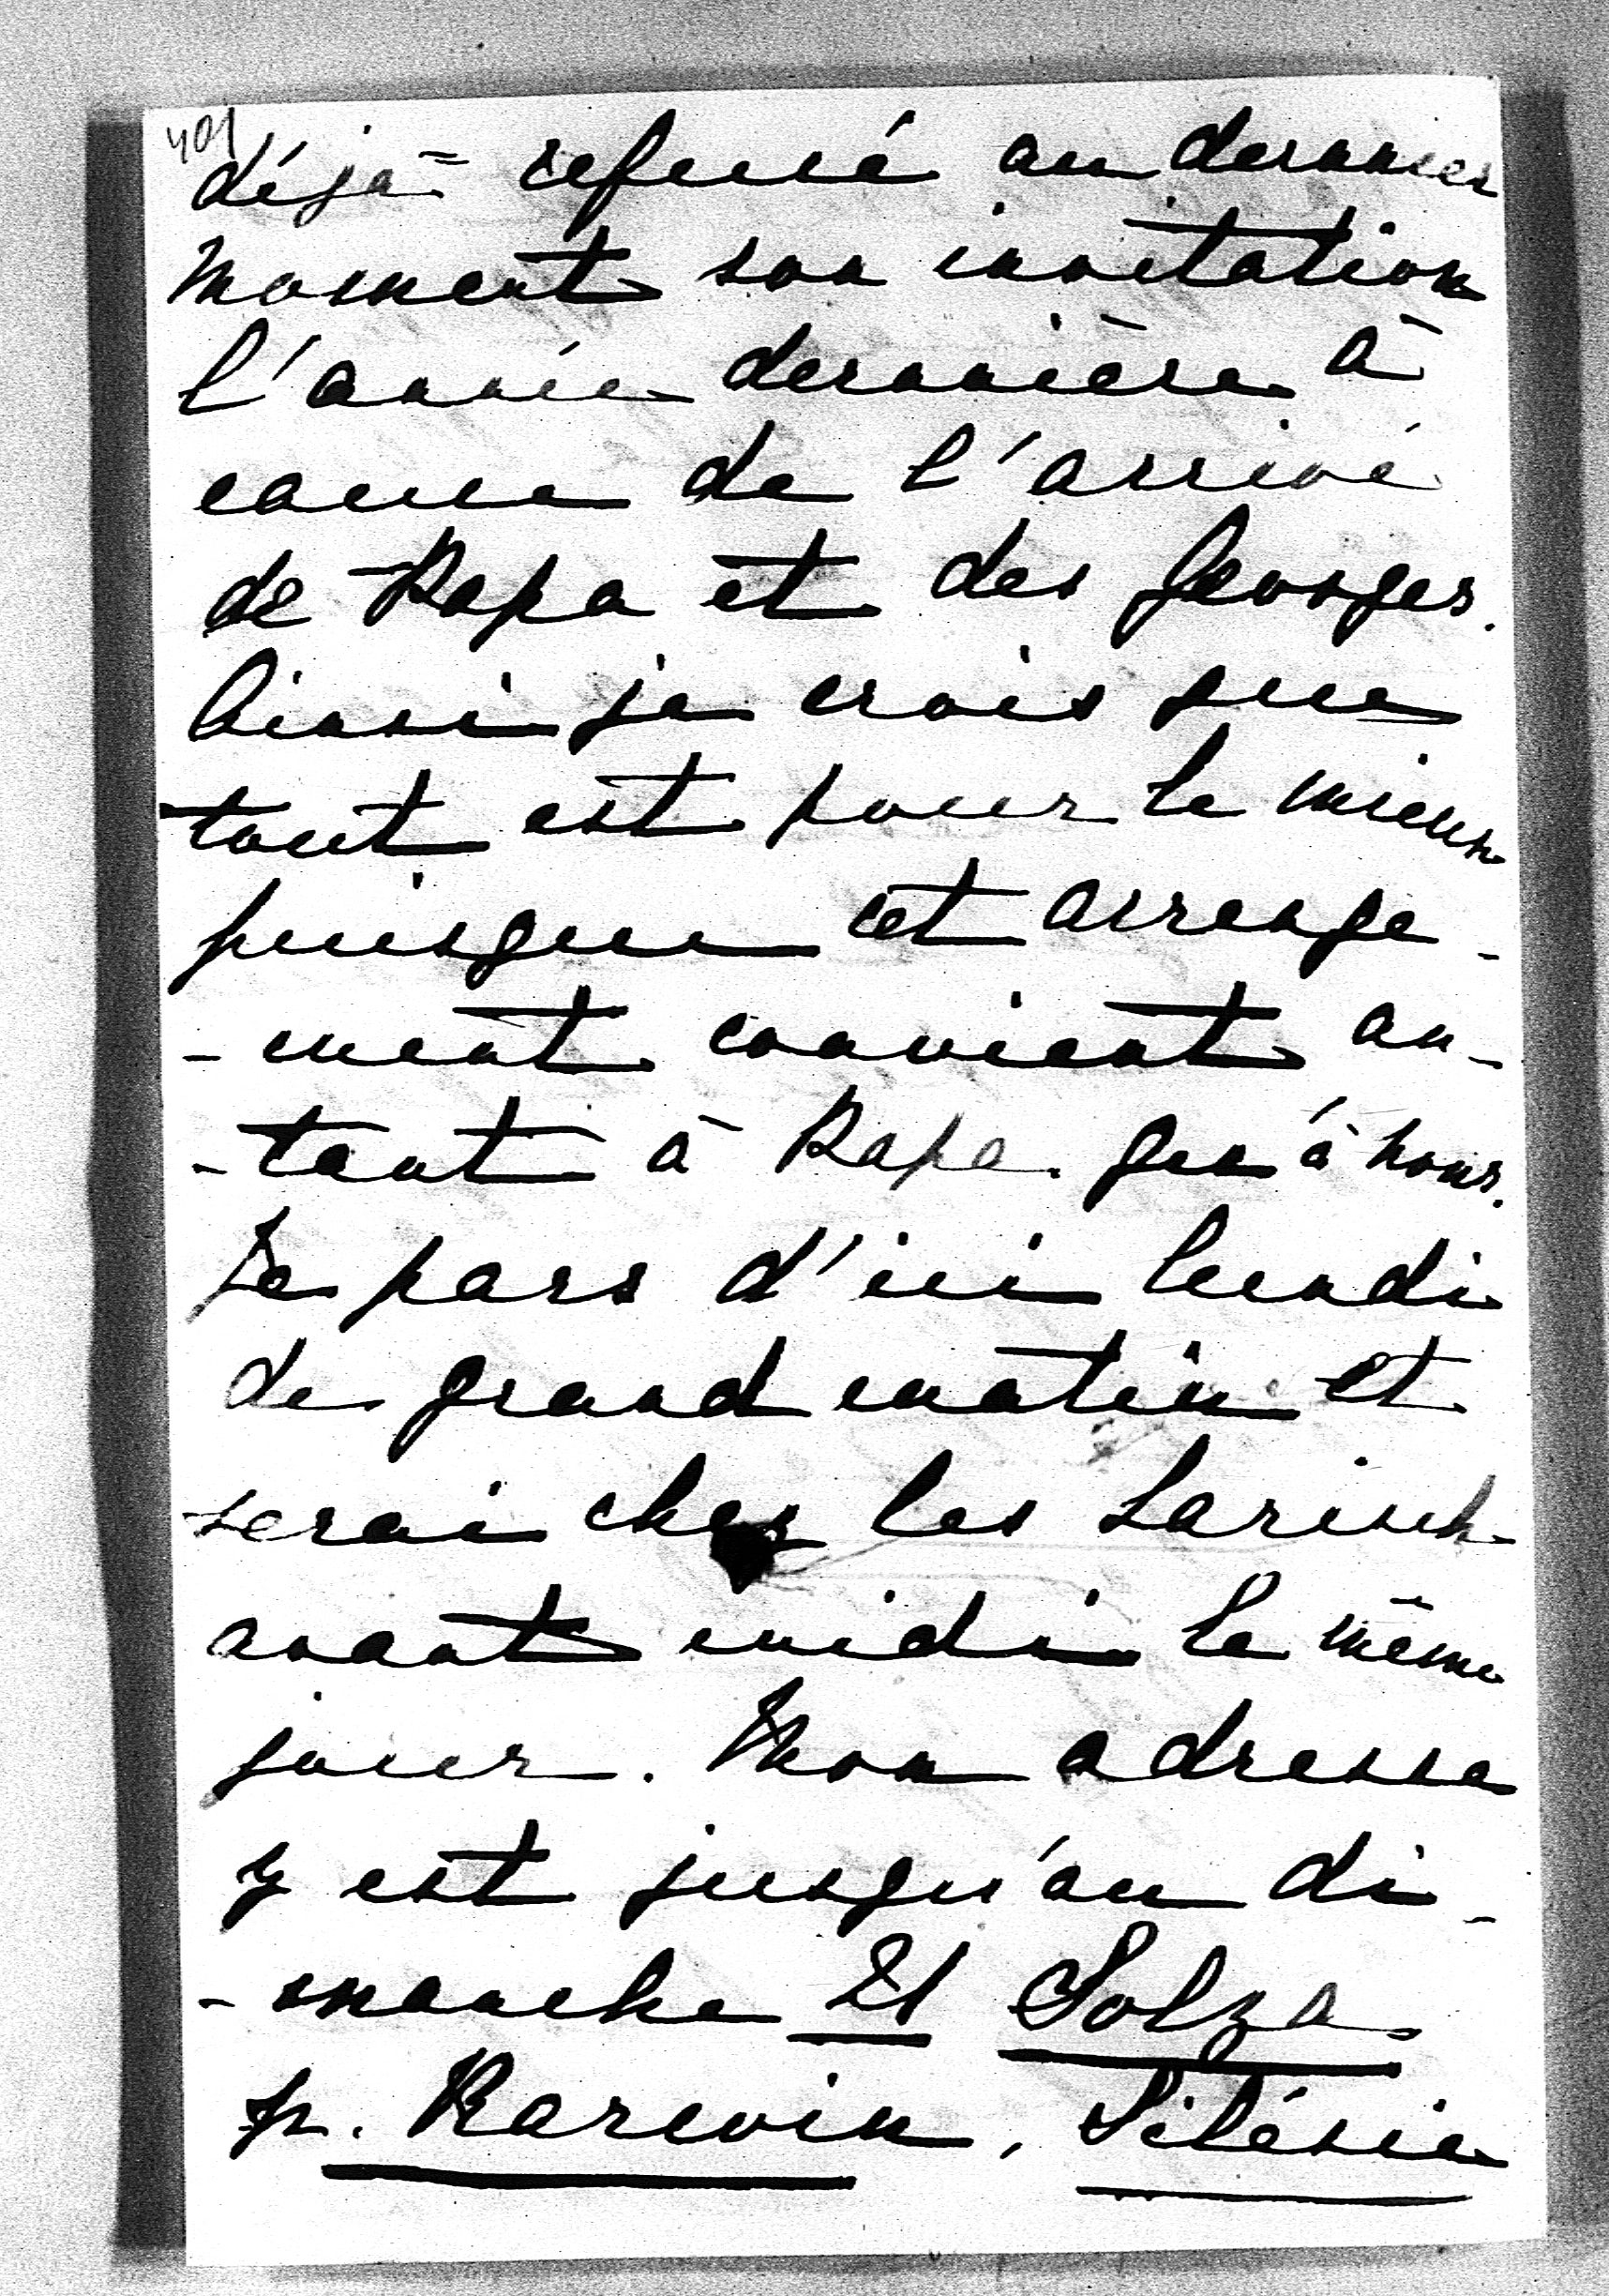 401
déjà refusé au dernier
moment son invitation
l'année dernière à
cause de l'arrivé
de Papa et des Georges.
Ainsi je crois que
tout est pour le mieux
puisque cet arrange-
-ment convient au-
-tant à Papa qu'à nous.
Je pars d'ici lundi
de grand matin et
serai chez les Larisch
avant midi le même
jour. Mon adresse
y est jusqu'au di-
-manche 21 Solza
p. Karwin, Silésie